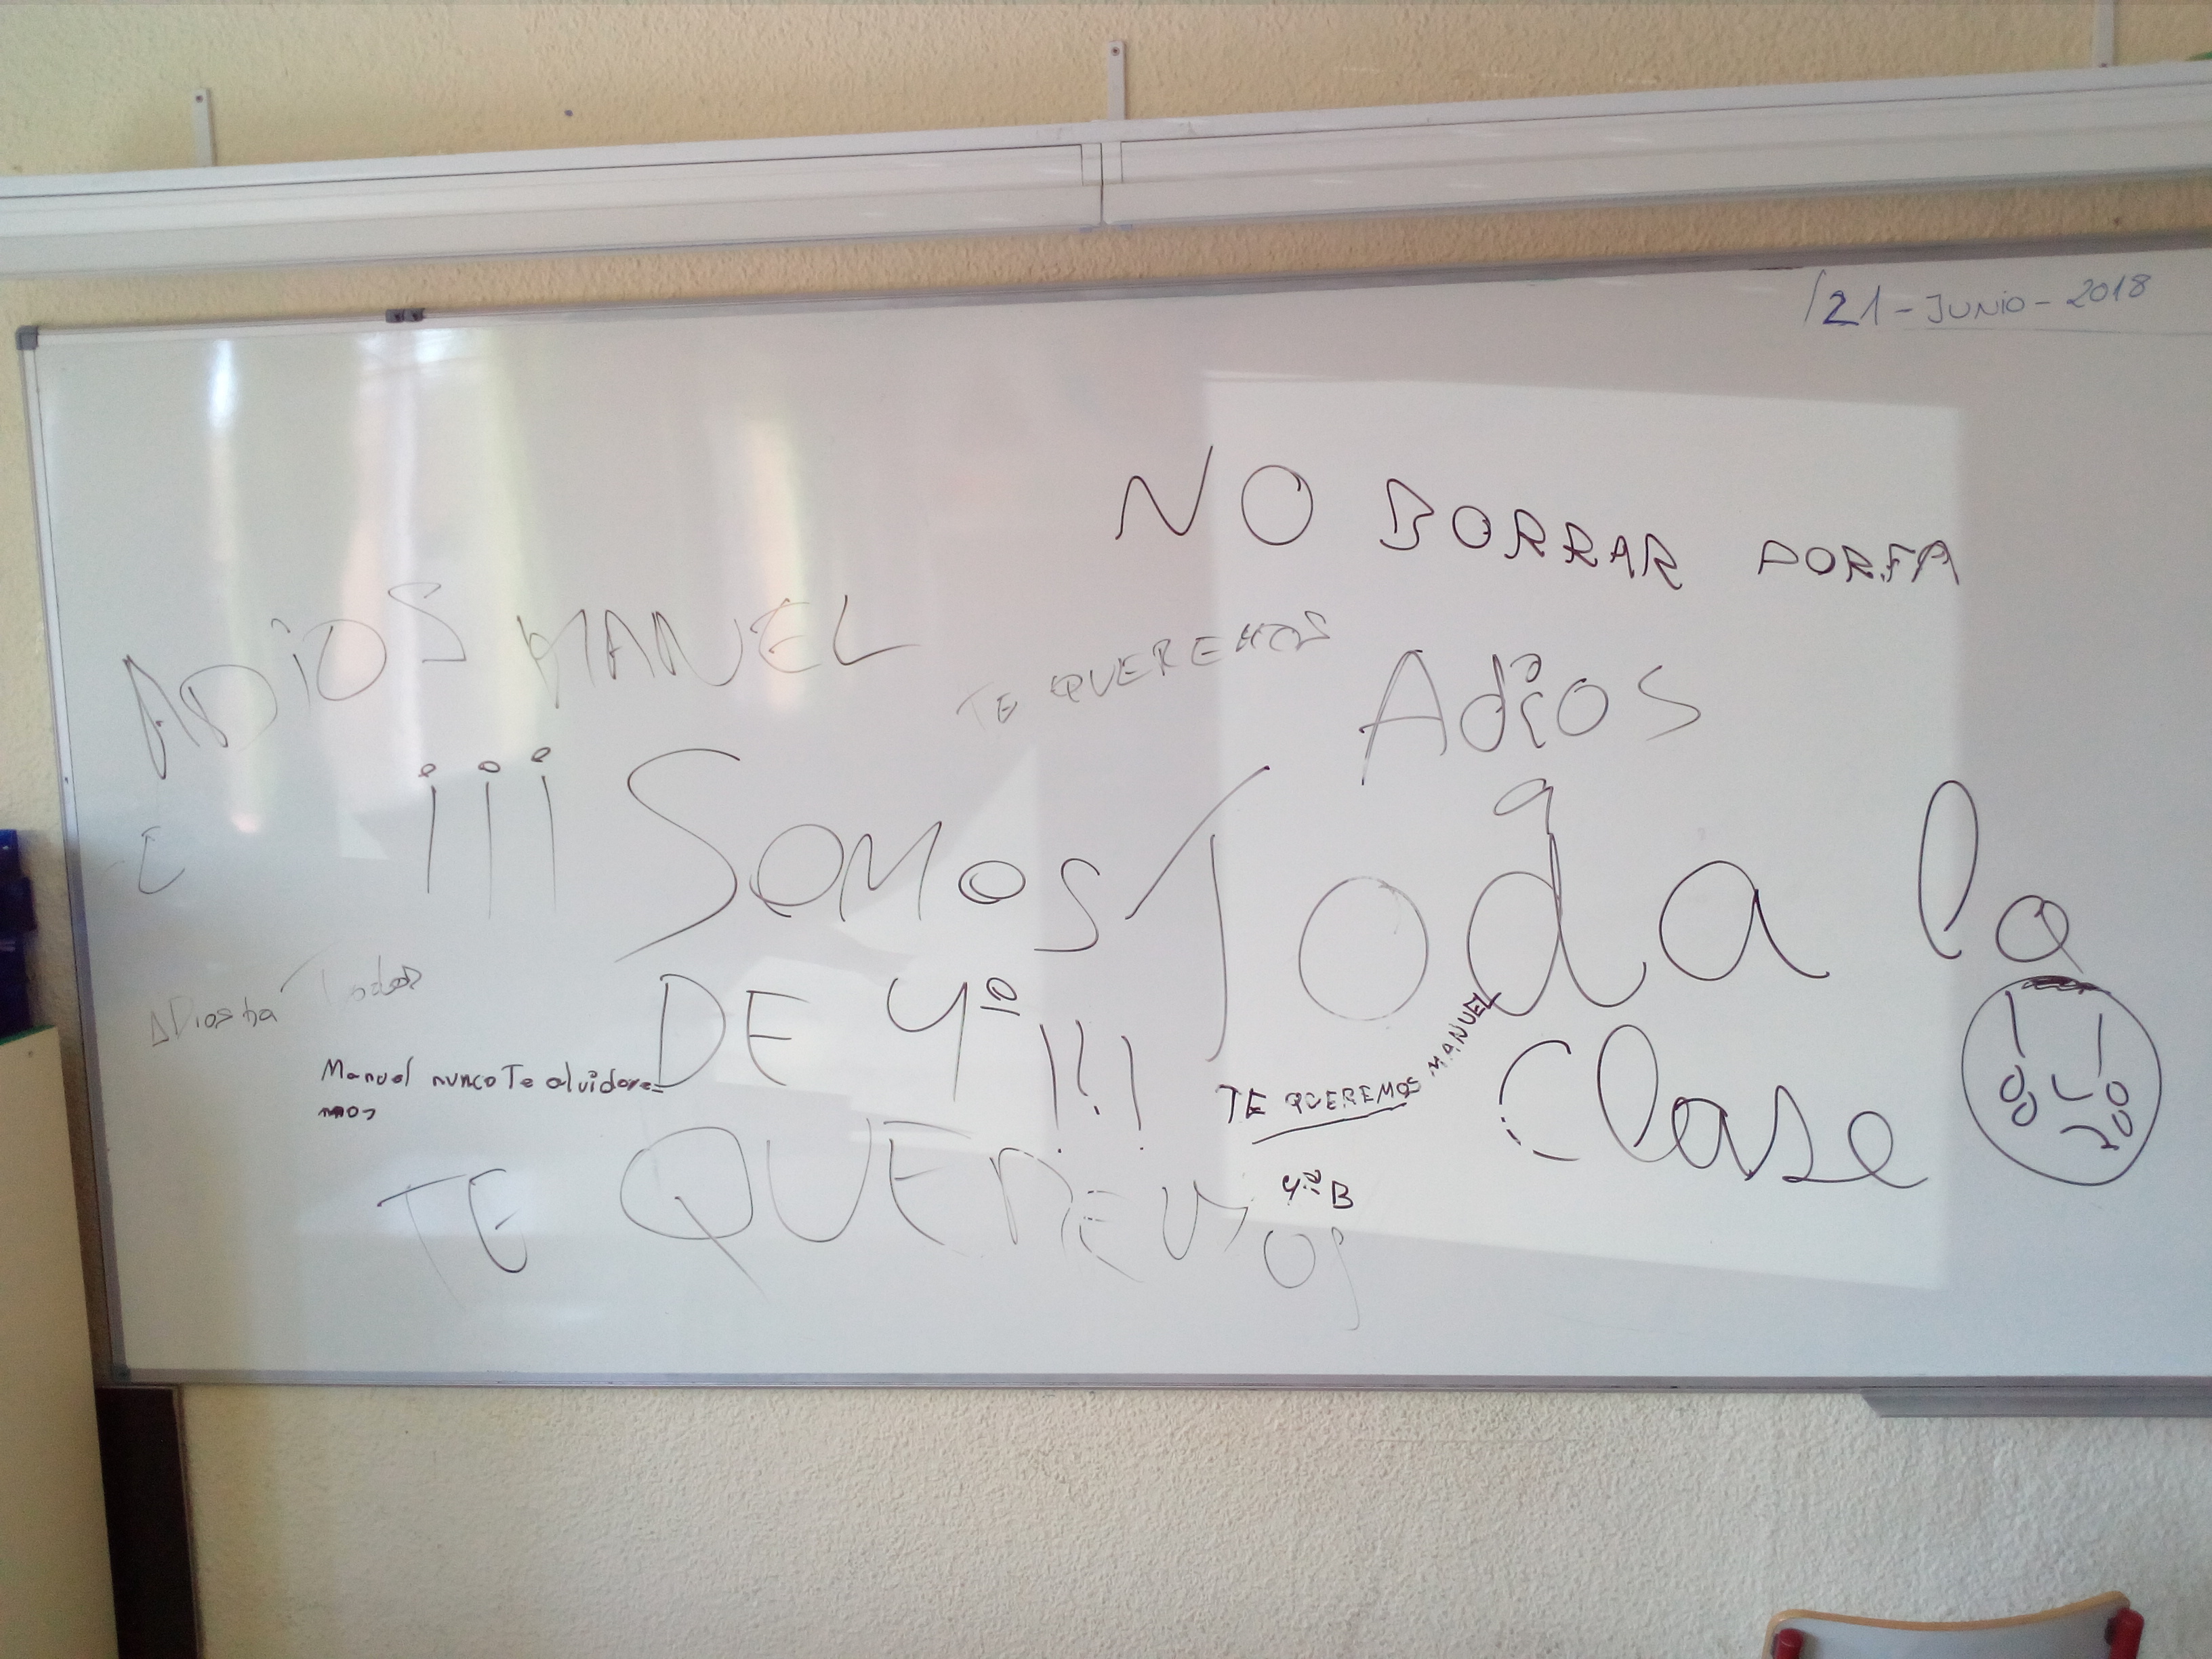 21-JUNIO-2018
NO BORRAR PORFA
ADiOS MANUEL
TE QUEREMOS
Adios
a
Toda la
clase
¡¡¡ SOMOS
DE 4º !!!
ADios ha Todos
Manuel nunca Te olvidare=
mos
TE QUEREMOS MANUEL
4º B
TE QUEREMOS